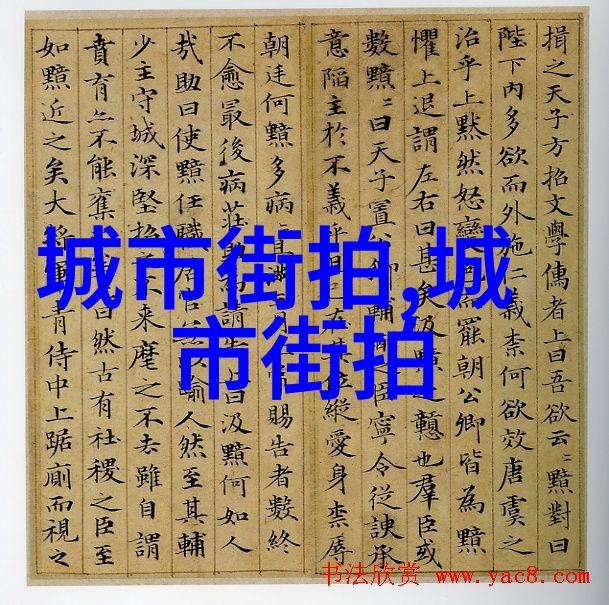 損之天子方招文學儒者上曰吾欲云〻黯對曰
陛下內多欲而外施仁義柰何欲效唐虞之
治乎上黙然怒變罷朝公卿皆為黯
懼上退謂左右曰甚矣汲黯之戇也羣臣或
數黯〻曰天子置公卿輔之臣寧令從諛承
意陷主於不義乎且其位縱愛身柰辱
朝廷何黯多病〻且滿三月賜告者數終
不愈最後病莊助為請告上曰汲黯何如人
哉助曰使黯任職居官以踰人然至其輔
少主守城深堅招之不来麾之不去雖自謂
賁育亦不能奪曰然古有社稷之臣至
如黯近之矣大將軍青侍中上踞廁而視之
城市街拍,城
市街拍
书法欣赏 www.yac8.com